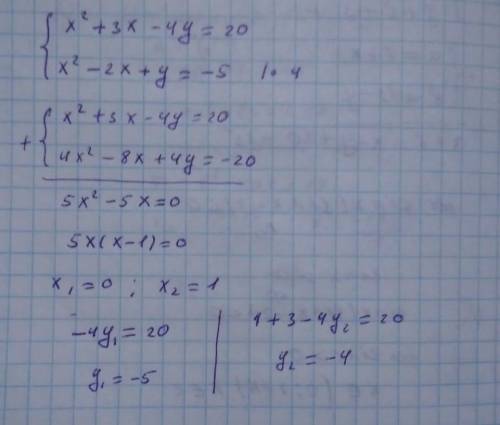 x² + 3x - 4y = 20
x² - 2x + y = -5 | · 4
+
x² + 3x - 4y = 20
4x² - 8x + 4y = -20
5x² - 5x = 0
5x(x - 1) = 0
x₁ = 0 ; x₂ = 1
-4y₁ = 20 | 1 + 3 - 4y₂ = 20
y₁ = -5 | y₂ = -4